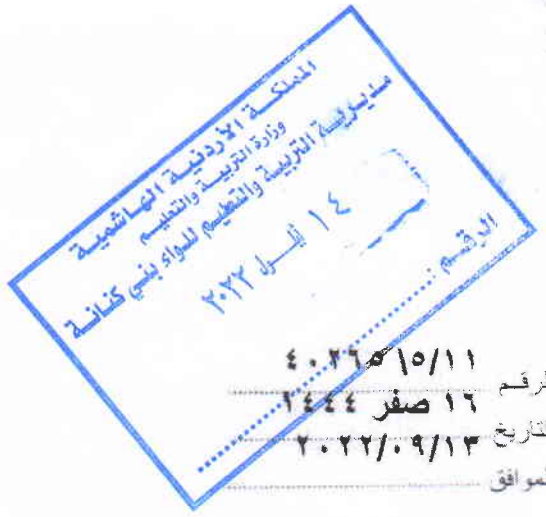 المملكة الأردنية الهاشمية
وزارة التربية والتعليم
مديرية التربية والتعليم للواء بني كنانة
١٤ أيلول ٢٠٢٢
الرقم :
الرقم ١٥/١١
التاريخ ١٦ صفر
الموافق ٢٠٢٢/٠٩/١٣